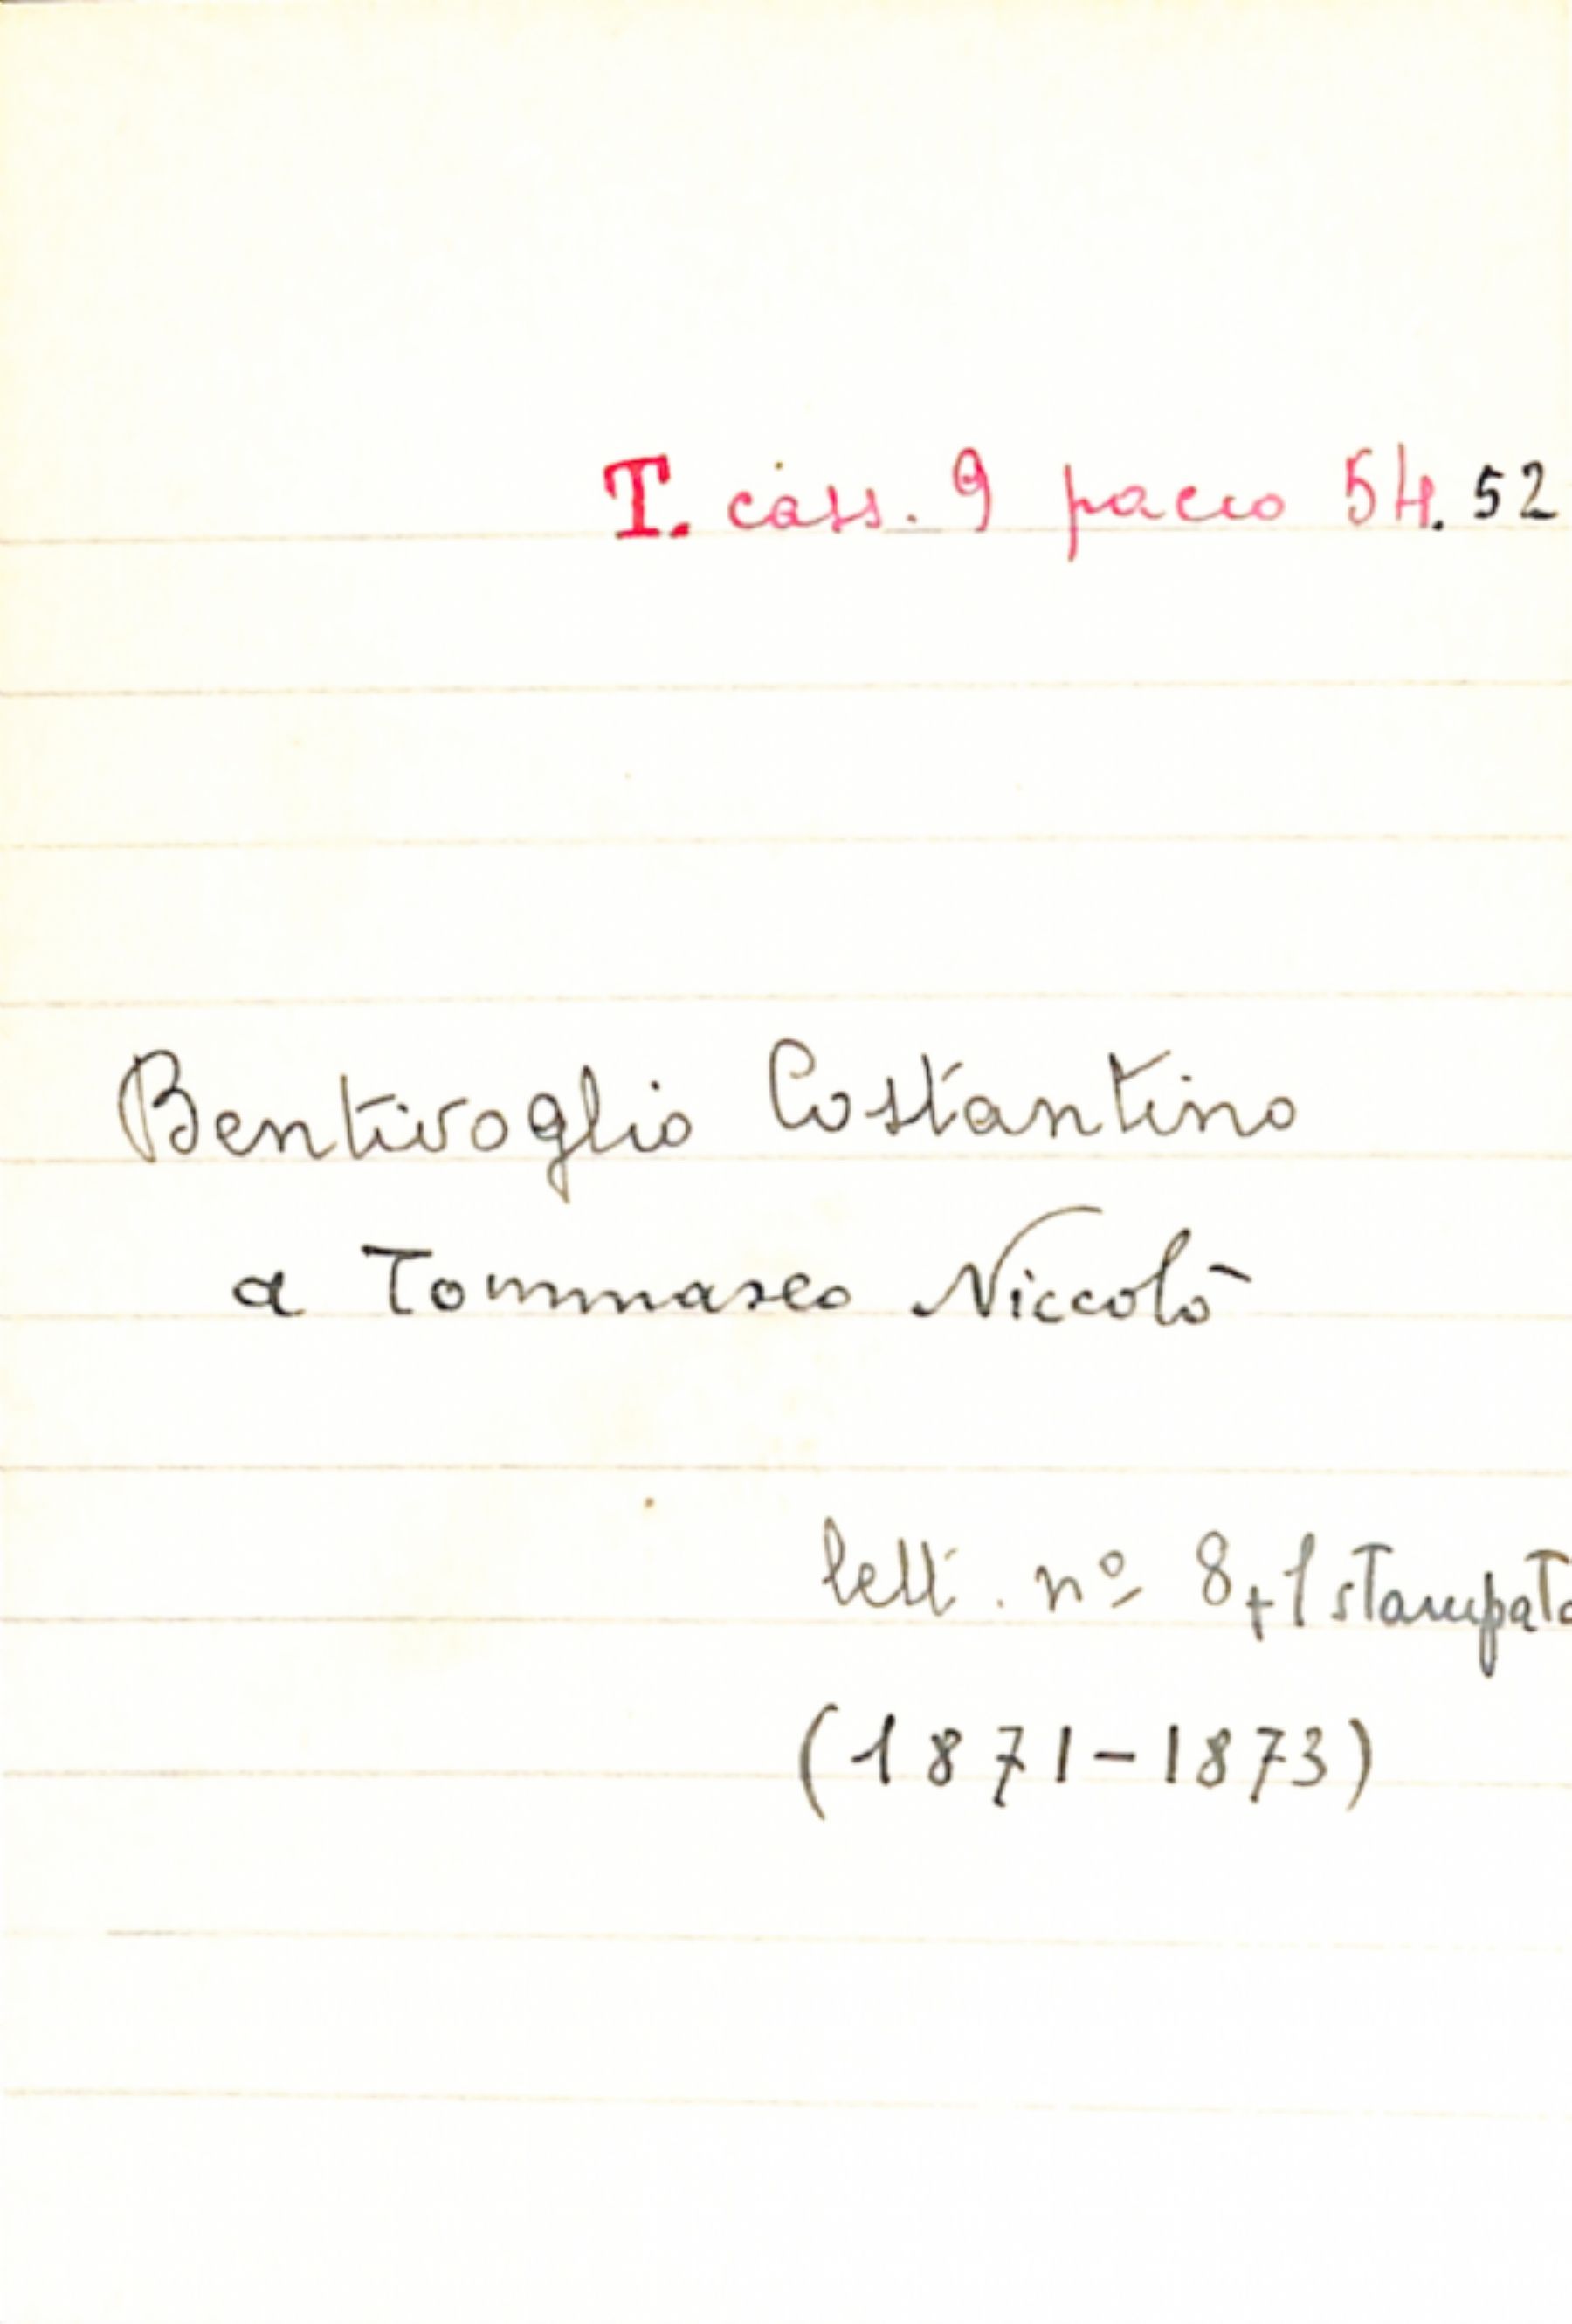 T. cass. 9 pacco 54. 52
Bentivoglio Costantino
a Tommaseo Niccolò
lett. nº 8+1 stampato
(1871-1873)